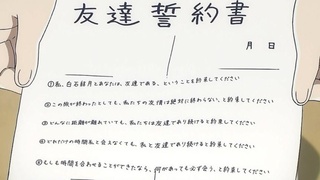 友達誓約書
月 日
①私、白石結月とあなたは、友達である、ということを約束してください
②この旅が終わったとしても、私たちの友情は絶対に終わらない、と約束してください
③どんなに距離が離れていても、私たちは友達であり続けると約束してください
④どれだけの時間私と会えなくても、私と友達であり続けると約束してください
⑤もしも時間を合わせることができたなら、何があっても必ず会う、と約束してください